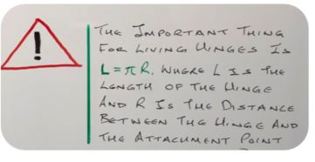 !
THE IMPORTANT THING
FOR LIVING HINGES IS
L=πR, WHERE L IS THE
LENGTH OF THE HINGE
AND R IS THE DISTANCE
BETWEEN THE HINGE AND
THE ATTACHMENT POINT